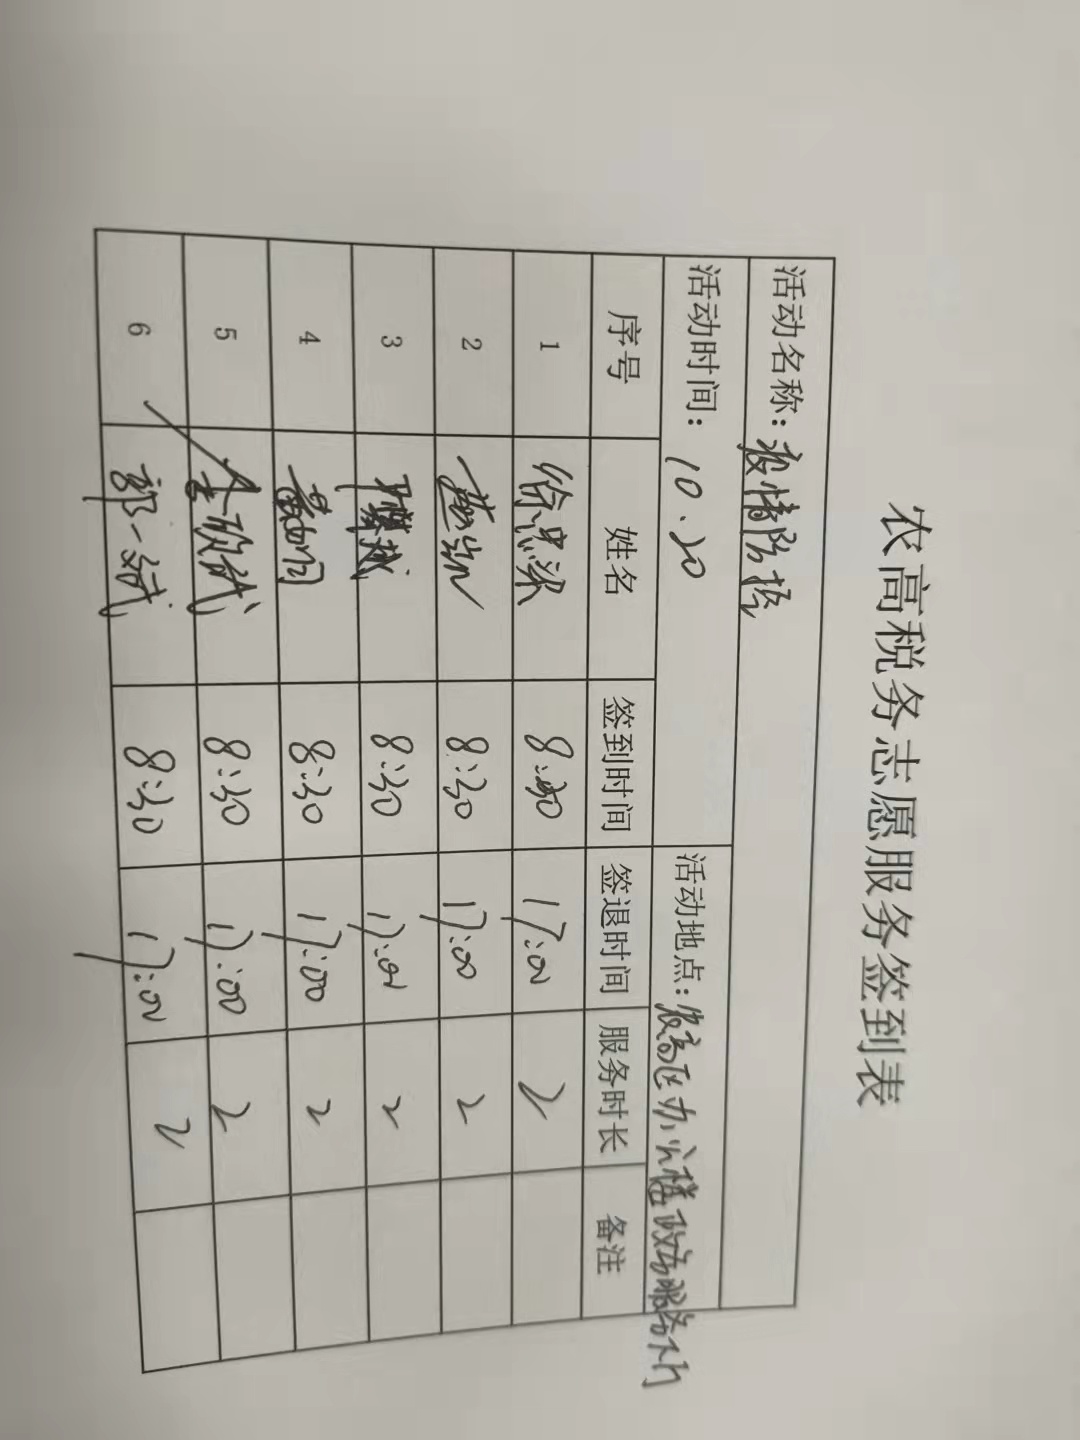 农高税务志愿服务签到表
活动名称：疫情防控
活动时间：10.20 活动地点：农高区办公楼政务服务大厅
序号 姓名 签到时间 签退时间 服务时长 备注
1 徐思梁 8:30 17:00 2
2 8:30 17:00 2
3 8:30 17:00 2
4 8:30 17:00 2
5 8:30 17:00 2
6 郭一斌 8:30 17:00 2